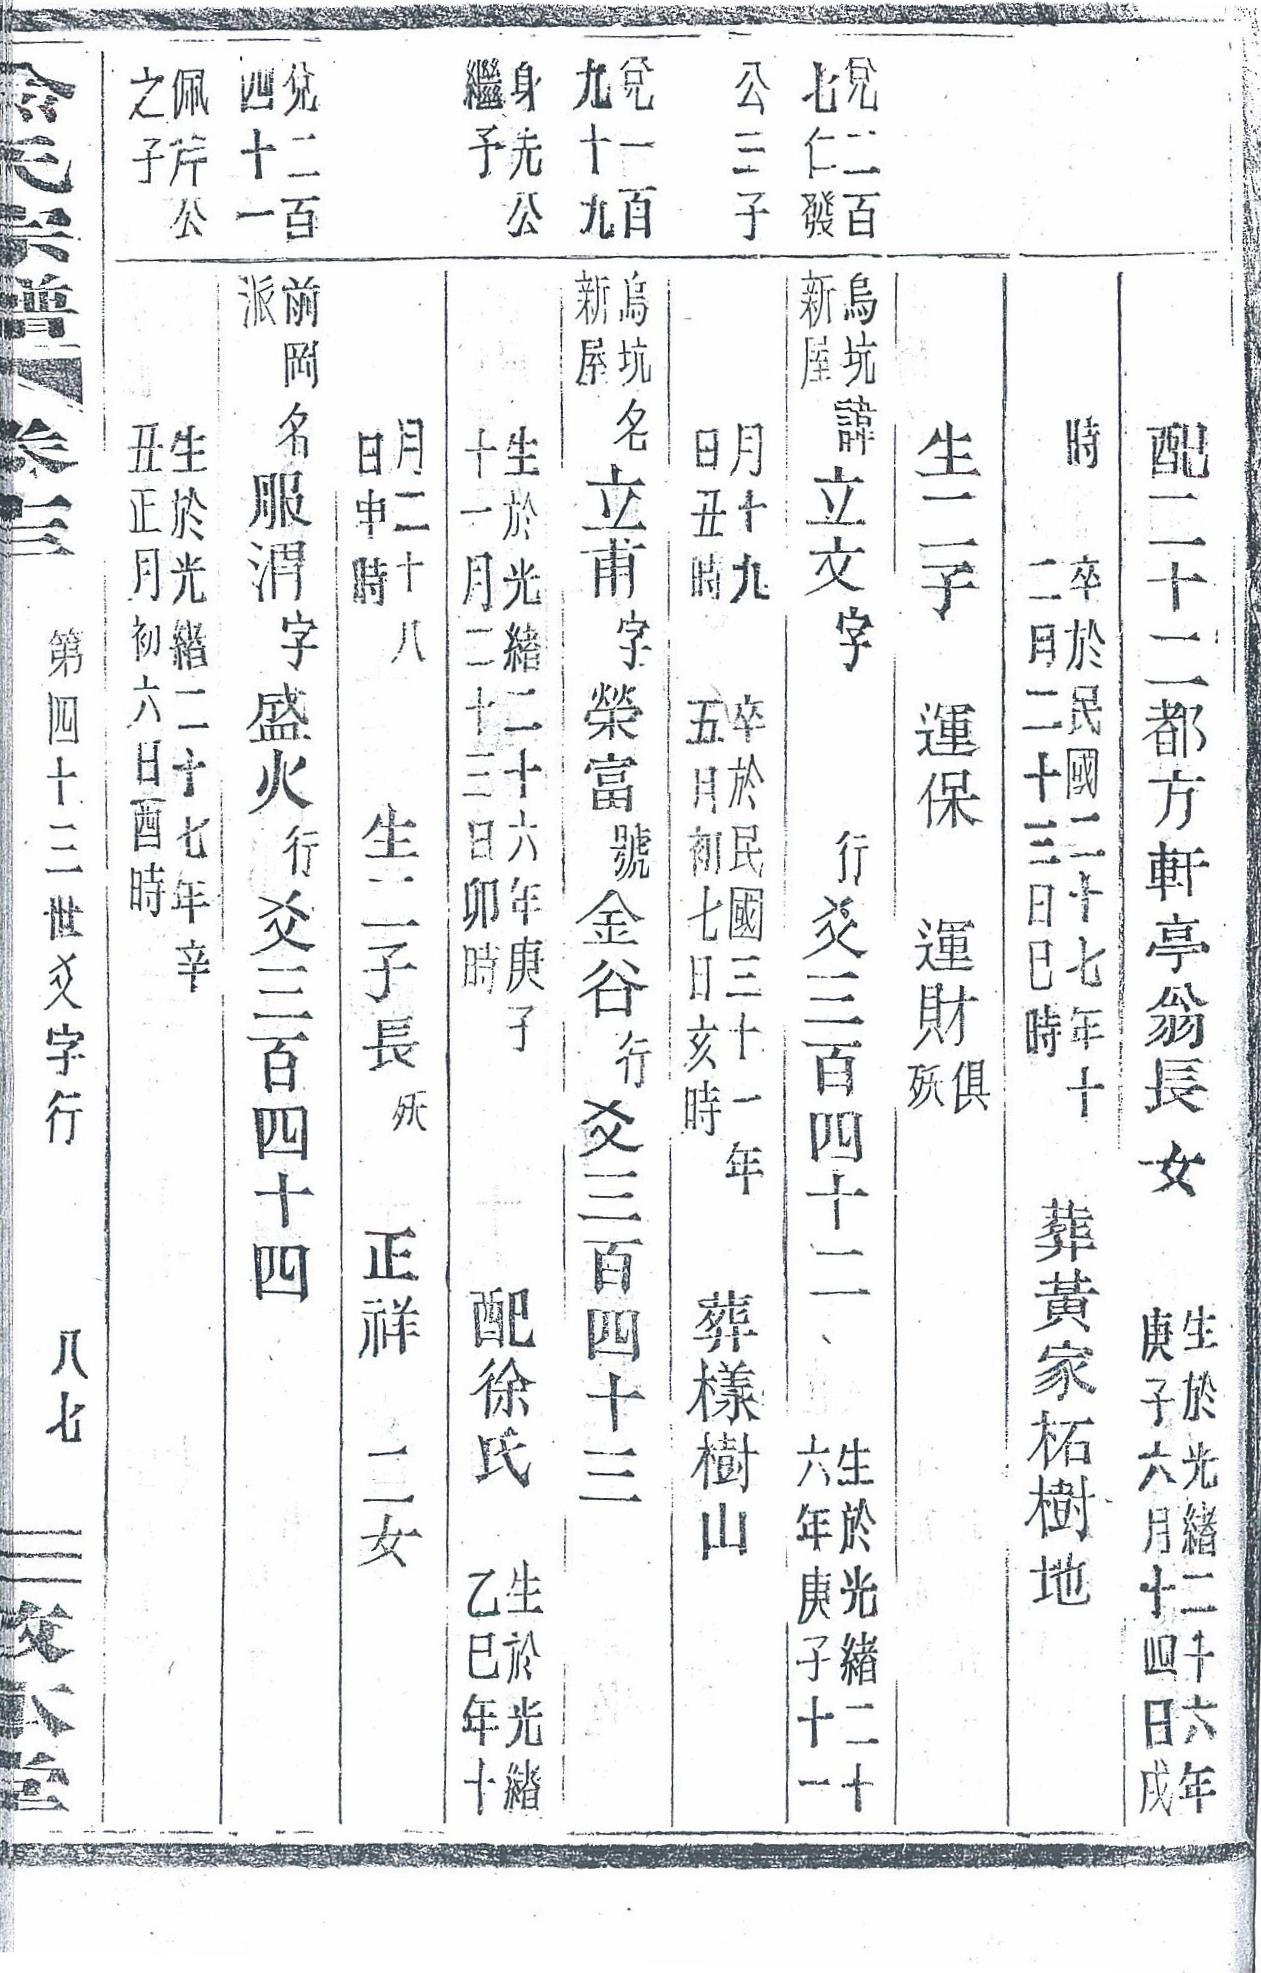 配二十二都方軒亭翁長女 生於光緒二十六年庚子六月十四日戌
時 卒於民國二十七年十二月二十三日巳時 葬黃家柘樹地
生二子 運保 運財 俱殀
兌二百七仁發 烏坑新屋 諱立文字 行爻三百四十二 生於光緒二十六年庚子十一
公三子 月十九日丑時 卒於民國三十一年五月初七日亥時 葬樣樹山
兌一百九十九 烏坑新屋 名立甫字榮富號金谷行爻三百四十三
身先公繼子 生於光緒二十六年庚子十一月二十三日卯時 配徐氏 生於光緒乙巳年十
月二十八日申時 生二子長殀 正祥 二女
兌二百四十一 前岡派 名服渭字盛火行爻三百四十四
佩芹公之子 生於光緒二十七年辛丑正月初六日酉時
余氏宗譜 卷三 第四十三世爻字行 八七 敦本堂